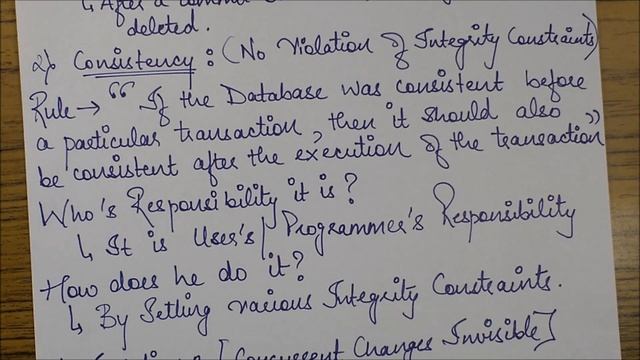 ↳ After a commit
deleted.
2) Consistency : (No Violation of Integrity Constraints)
Rule → “ If the Database was consistent before
a particular transaction, then it should also
be consistent after the execution of the transaction”
Who's Responsibility it is?
↳ It is User's/Programmer's Responsibility
How does he do it?
↳ By Setting various Integrity Constraints.
[Concurrent Changes Invisible]